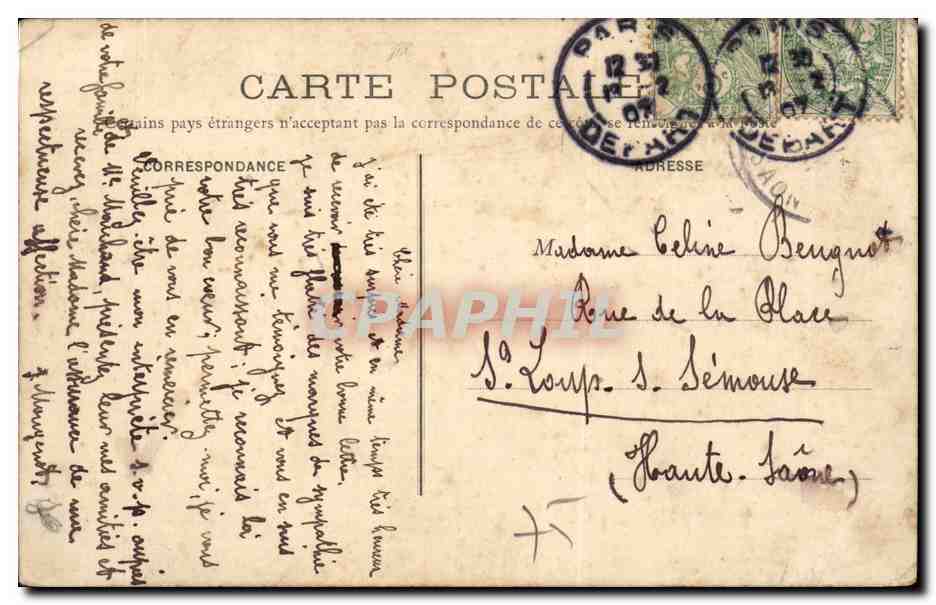 CARTE POSTALE
tains pays étrangers n'acceptant pas la correspondance de ce côté, se renseigner à la Poste
CORRESPONDANCE
ADRESSE
PARIS
12 30
2
07
DEPART
PARIS
12 30
2
07
DEPART
Madame Celine Beugnot
Rue de la Place
St. Loup. s. Sémouse
(Haute-Saône)
Chère Madame
j'ai été très surpris et en même temps très heureux
de recevoir votre bonne lettre.
je suis très flatté des marques de sympathie
que vous me témoignez et vous en suis
très reconnaissant; je reconnais là
votre bon coeur; permettez-moi, je vous
prie de vous en remercier.
Veuillez être mon interprète s.v.p. auprès
de Me. présentez leur mes amitiés et
de votre famille
recevez, chère Madame l'assurance de ma
respectueuse affection.
CPAPHIL